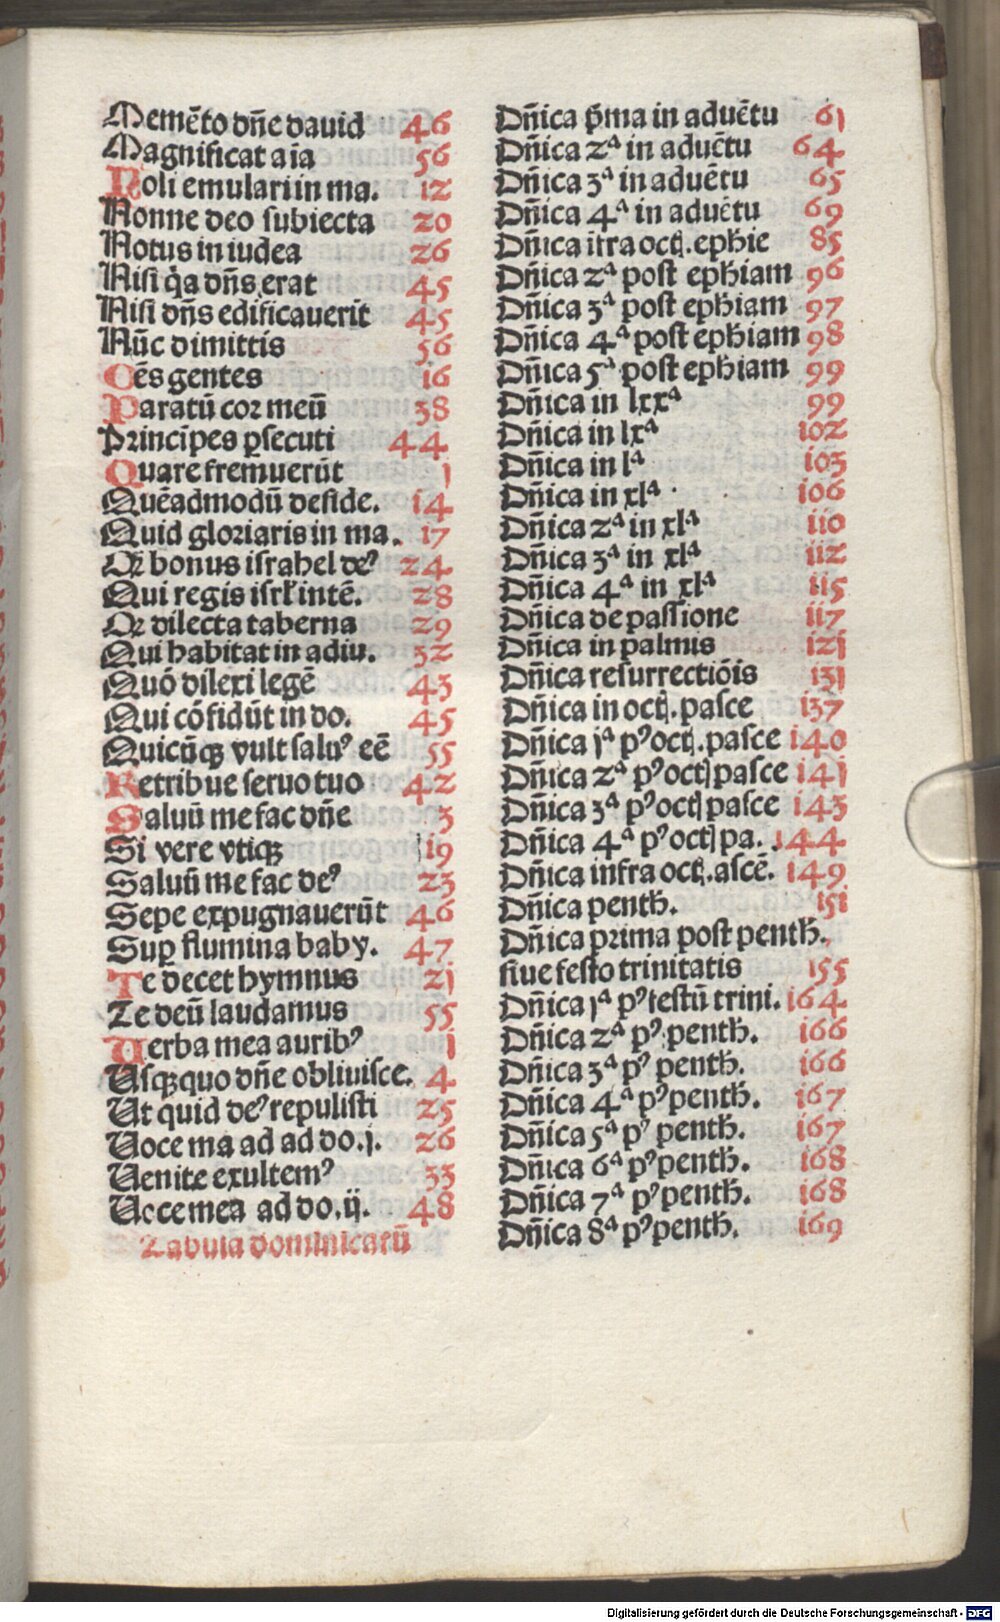 Memẽto dñe dauid 46
Magnificat aĩa 56
Noli emulari in ma. 12
Nonne deo subiecta 20
Notus in iudea 26
Nisi q̇a dñs erat 45
Nisi dñs edificauerit 45
Nũc dimittis 56
Oẽs gentes 16
Paratũ cor meũ 38
Principes ꝑsecuti 44
Quare fremuerũt 1
Quẽadmodũ deside. 14
Quid gloriaris in ma. 17
Qꝫ bonus israhel deꝰ 24
Qui regis isrł intẽ. 28
Qꝫ dilecta taberna 29
Qui habitat in adiu. 32
Quõ dilexi legẽ 43
Qui cõfidũt in do. 45
Quicũqꝫ vult saluꝰ eẽ 55
Retribue seruo tuo 42
Saluũ me fac dñe 3
Si vere vtiqꝫ 19
Saluũ me fac deꝰ 23
Sepe expugnauerũt 46
Suꝑ flumina baby. 47
Te decet hymnus 21
Te deũ laudamus 55
Uerba mea auribꝰ 1
Usqꝫquo dñe obliuisce. 4
Ut quid deꝰ repulisti 25
Uoce mea ad do. j. 26
Uenite exultemꝰ 33
Uoce mea ad do. ij. 48
Tabula dominicarũ
Dñica p̃ma in aduẽtu 61
Dñica 2ᵃ in aduẽtu 64
Dñica 3ᵃ in aduẽtu 65
Dñica 4ᵃ in aduẽtu 69
Dñica ĩfra octꝭ. epħie 85
Dñica 2ᵃ post epħiam 96
Dñica 3ᵃ post epħiam 97
Dñica 4ᵃ post epħiam 98
Dñica 5ᵃ post epħiam 99
Dñica in lxxᵃ 99
Dñica in lxᵃ 102
Dñica in lᵃ 103
Dñica in xlᵃ 106
Dñica 2ᵃ in xlᵃ 110
Dñica 3ᵃ in xlᵃ 112
Dñica 4ᵃ in xlᵃ 115
Dñica de passione 117
Dñica in palmis 121
Dñica resurrectiõis 131
Dñica in octꝭ. pasce 137
Dñica jᵃ pꝰ octꝭ. pasce 140
Dñica 2ᵃ pꝰ octꝭ pasce 141
Dñica 3ᵃ pꝰ octꝭ pasce 143
Dñica 4ᵃ pꝰ octꝭ pa. 144
Dñica infra octꝭ. ascẽ. 149
Dñica pentħ. 151
Dñica prima post pentħ.
siue festo trinitatis 155
Dñica jᵃ pꝰ festũ trini. 164
Dñica 2ᵃ pꝰ pentħ. 166
Dñica 3ᵃ pꝰ pentħ. 166
Dñica 4ᵃ pꝰ pentħ. 167
Dñica 5ᵃ pꝰ pentħ. 167
Dñica 6ᵃ pꝰ pentħ. 168
Dñica 7ᵃ pꝰ pentħ. 168
Dñica 8ᵃ pꝰ pentħ. 169
Digitalisierung gefördert durch die Deutsche Forschungsgemeinschaft - DFG